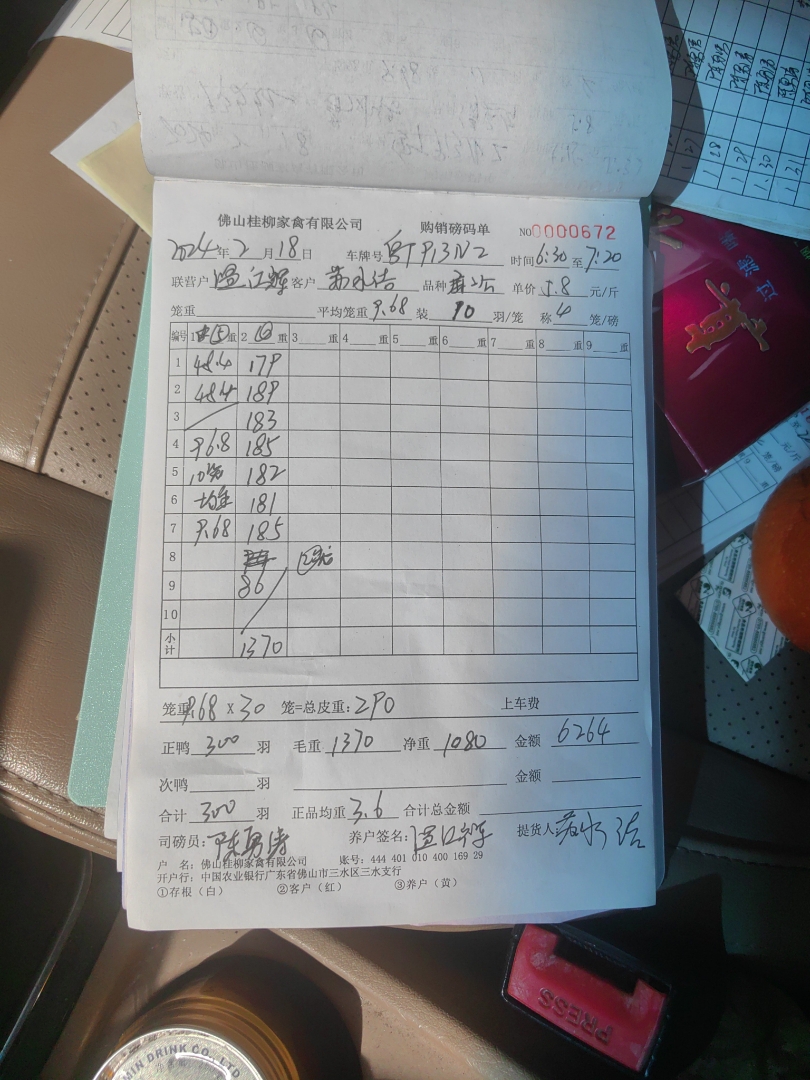 佛山桂柳家禽有限公司 购销磅码单 NO0000672
2024年2月18日 车牌号 P13N2 时间6:30至7:20
联营户 温江辉 客户 品种 单价 5.8 元/斤
笼重 平均笼重 9.68 装 10 羽/笼 称 4 笼/磅
编号 1 ⑤ 重 2 ⑩ 重 3 重 4 重 5 重 6 重 7 重 8 重 9 重
1 48.4 179
2 48.4 189
3 183
4 96.8 185
5 10笼 182
6 均重 181
7 9.68 185
8
9 86
10
小计 1370
笼重9.68 x 30 笼=总皮重:290 上车费
正鸭 300 羽 毛重 1370 净重 1080 金额 6264
次鸭 羽 金额
合计 300 羽 正品均重 3.6 合计总金额
司磅员: 陈勇涛 养户签名: 提货人
户 名:佛山桂柳家禽有限公司 账号:444 401 010 400 169 29
开户行:中国农业银行广东省佛山市三水区三水支行
①存根(白) ②客户(红) ③养户(黄)
1.27
1.28
1.29
1.30
1.31
过滤嘴
PRESS
MIN DRINK CO., LTD